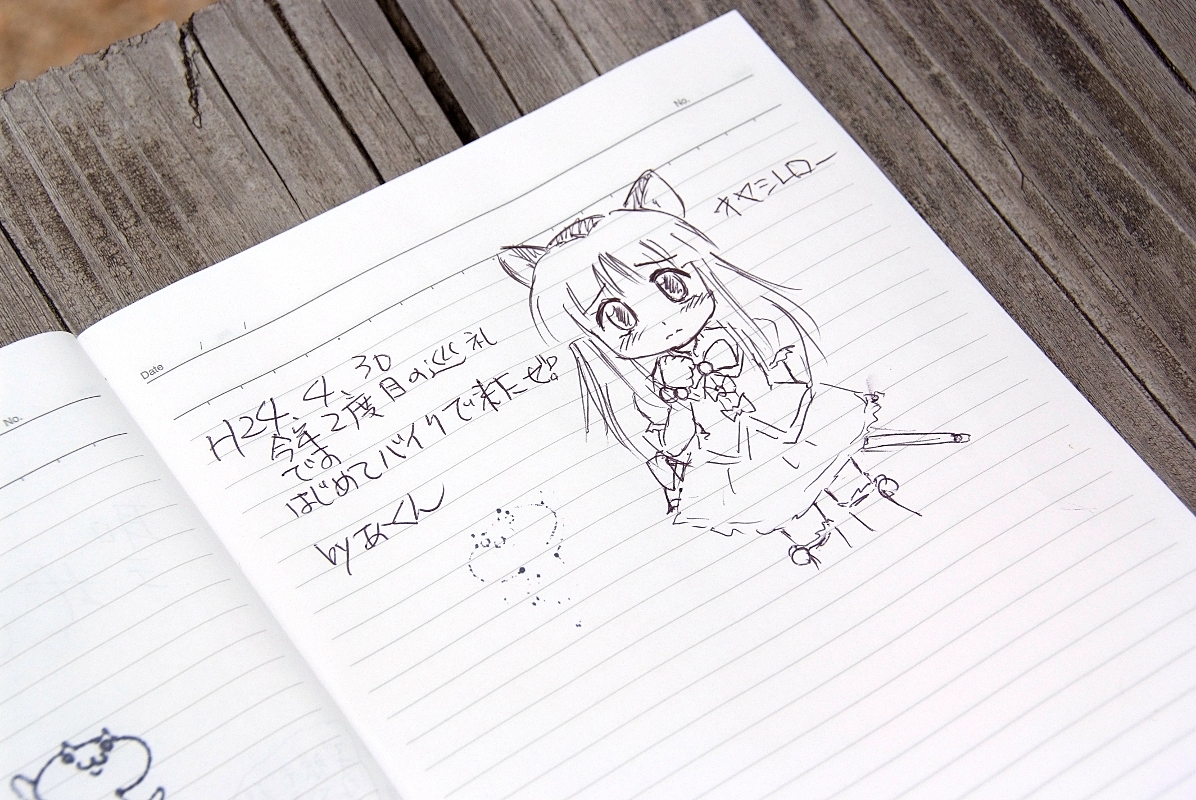 No.
Date
オヤシロー
H24.4.30
今年2度目の巡礼
です
はじめてバイクで来たぜ!
by あくん
No.